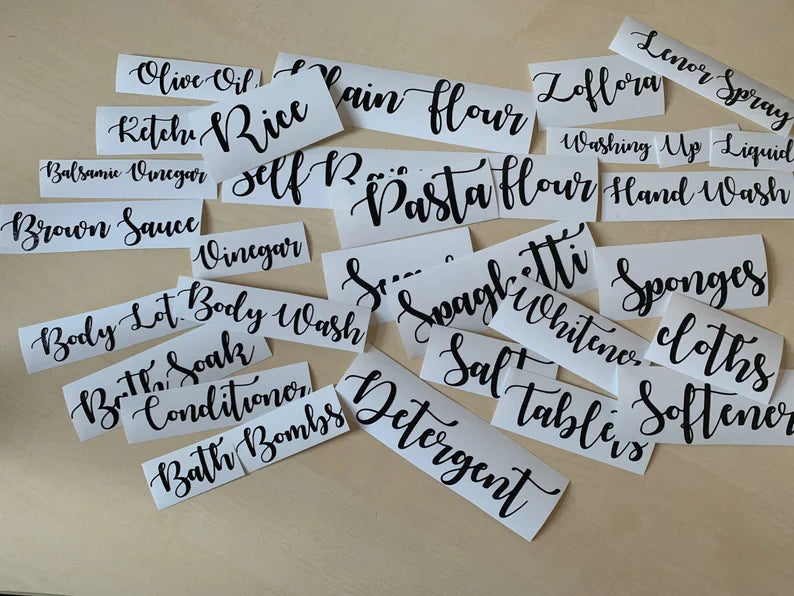 Olive Oil
Plain flour
Zoflora
Lenor Spray
Ketchu
Rice
Washing Up Liquid
Balsamic Vinegar
Self Rai flour
Pasta
Hand Wash
Brown Sauce
Vinegar
Spaghetti
Sponges
Body Lot
Body Wash
Whitener
cloths
Bath Soak
Salt
Conditioner
Tablets
Softener
Detergent
Bath Bombs